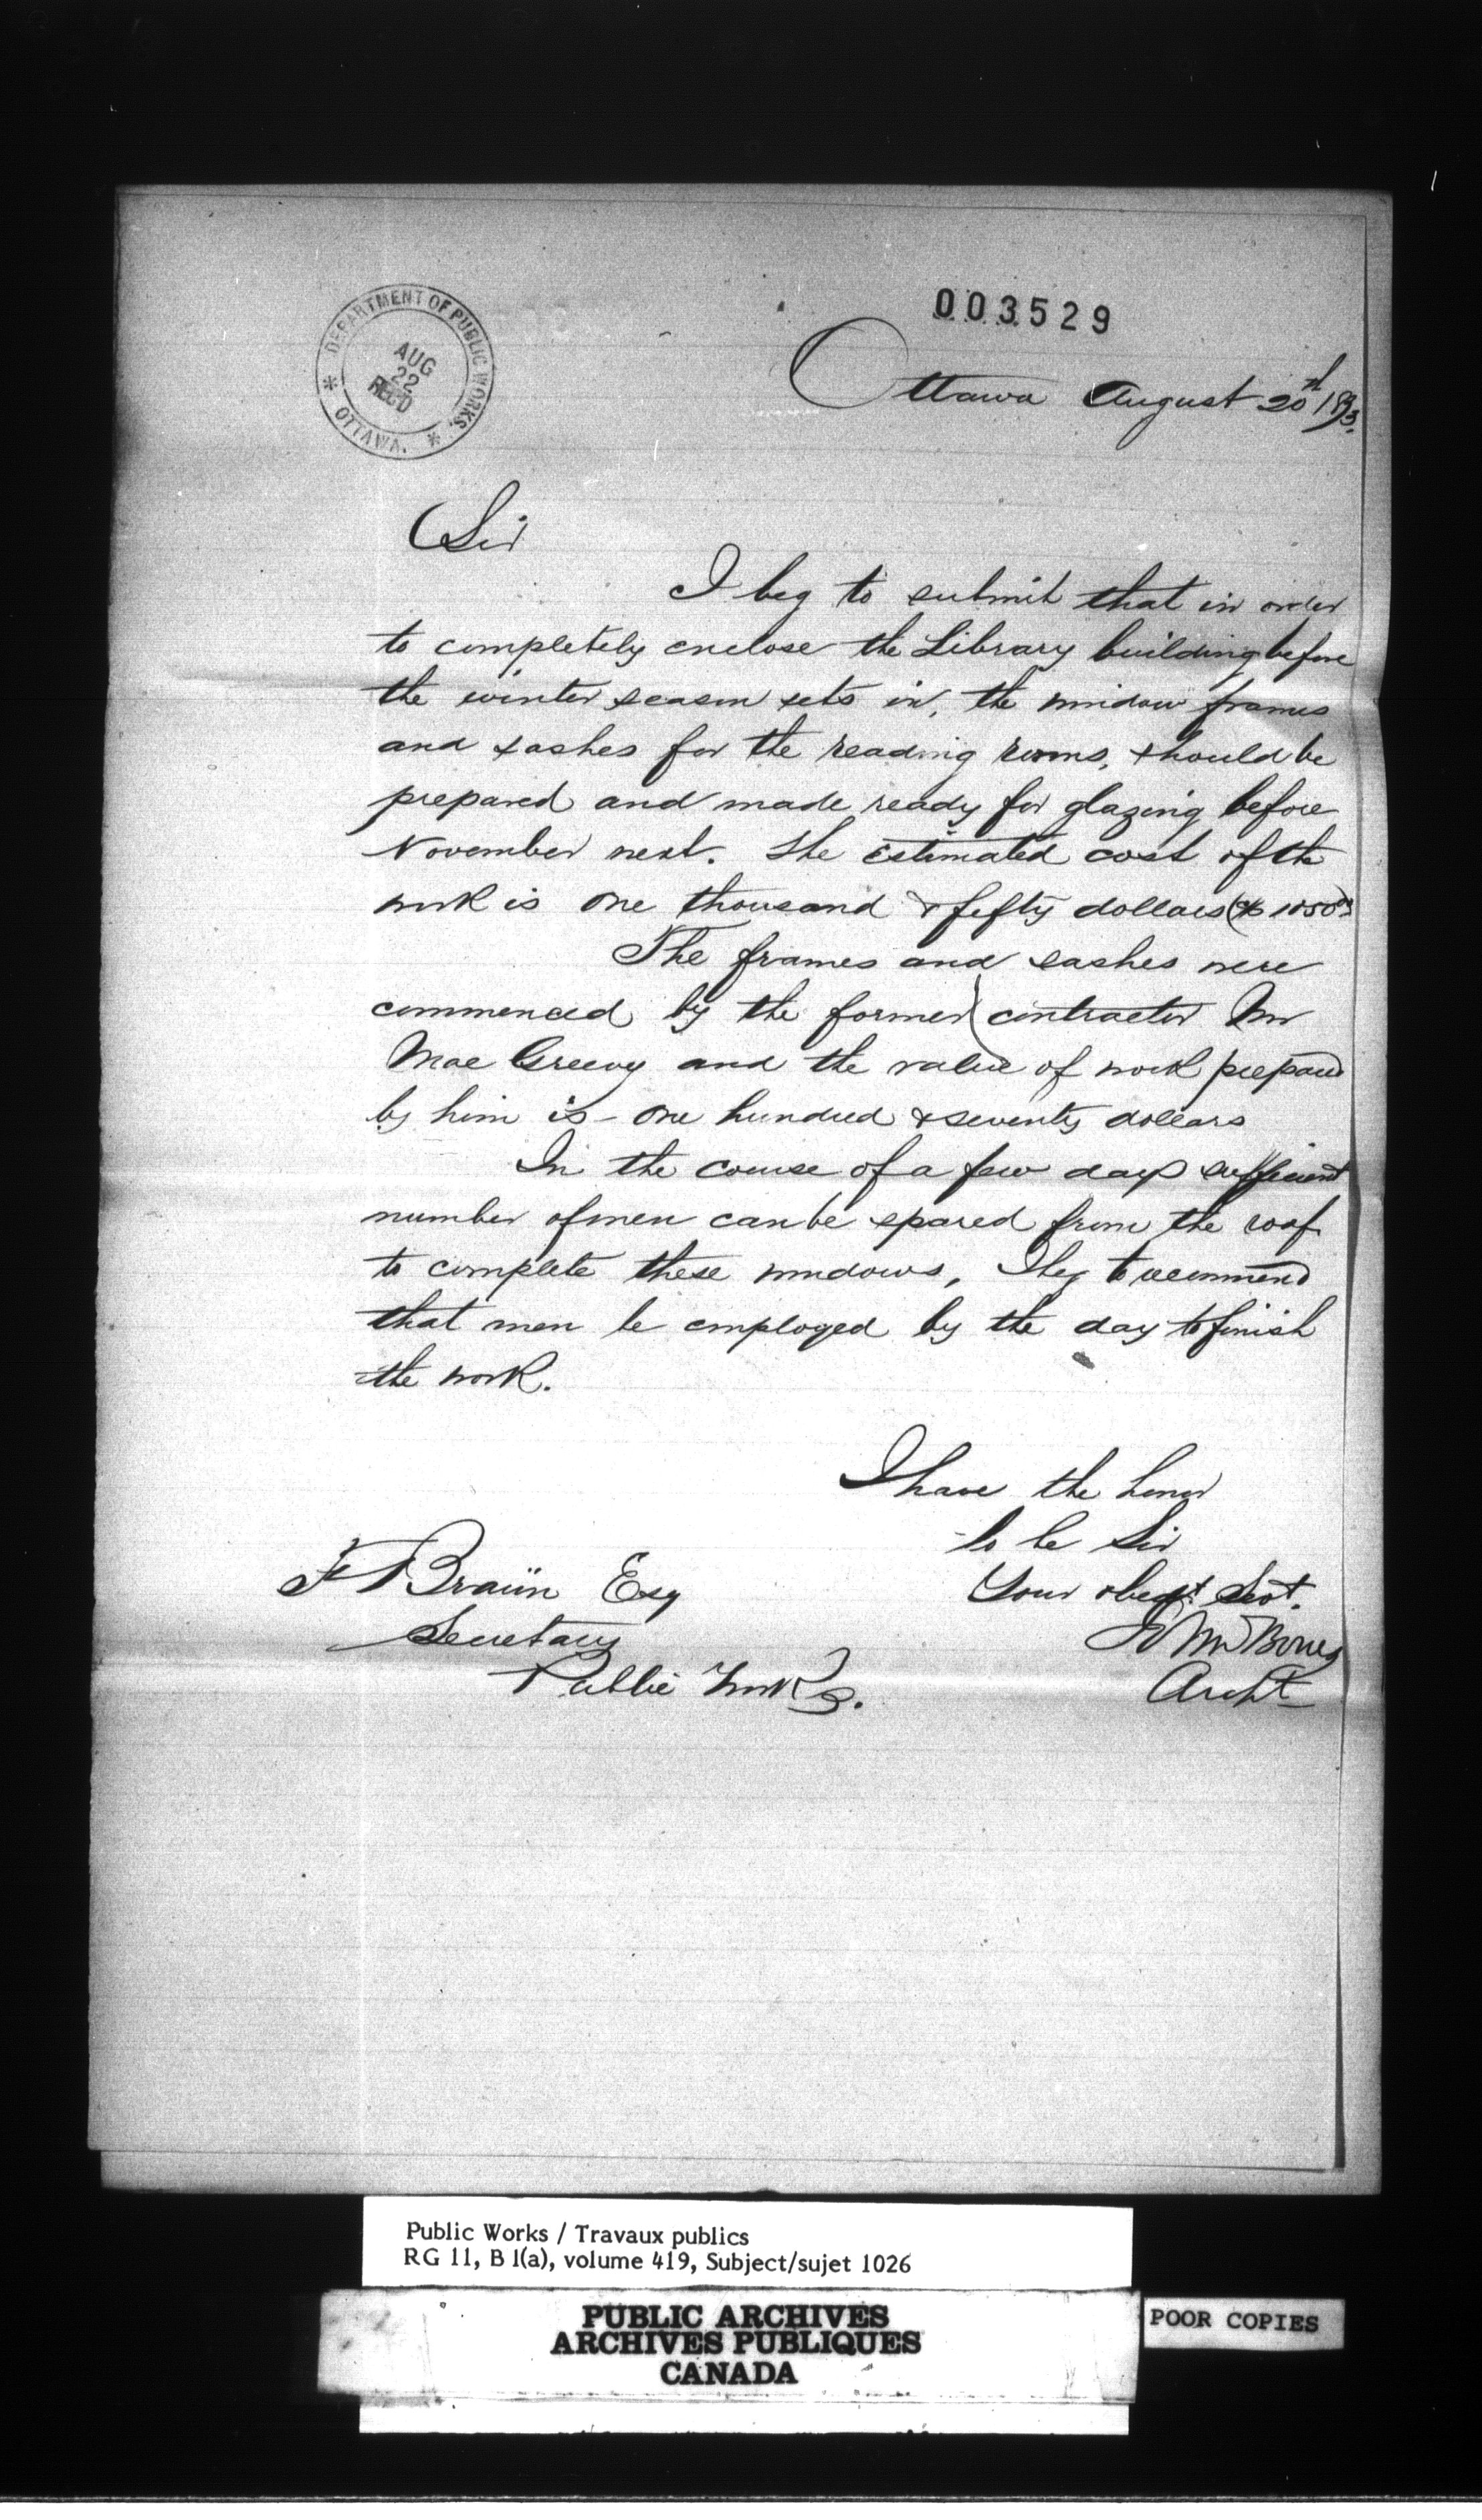 DEPARTMENT OF PUBLIC WORKS.
AUG
22
REC'D
OTTAWA.
003529
Ottawa August 20th 1873.
Sir
I beg to submit that in order
to completely enclose the Library building before
the winter season sets in, the window frames
and sashes for the reading rooms, should be
prepared and made ready for glazing before
November next. The estimated cost of the
work is one thousand & fifty dollars ($1050
The frames and sashes were
commenced by the former contractor Mr
Mac Greevy and the value of work prepared
by him is - one hundred & seventy dollars
In the course of a few days sufficient
number of men can be spared from the roof
to complete these windows, I beg to recommend
that men be employed by the day to finish
the work.
I have the honor
to be Sir
Your obedt Sevt.
F Braün Esq
Secretary
Public Works.
Archt
Public Works / Travaux publics
RG 11, B 1(a), volume 419, Subject/sujet 1026
PUBLIC ARCHIVES
ARCHIVES PUBLIQUES
CANADA
POOR COPIES